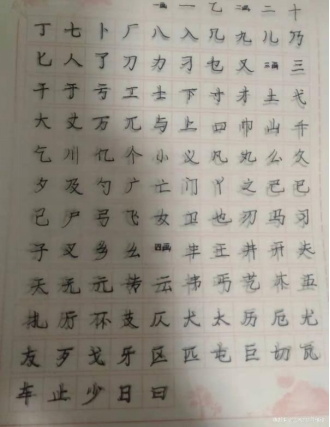 一画 一 乙 二画 二 十
丁 七 卜 厂 八 入 几 九 儿 乃
匕 人 了 刀 力 刁 乜 又 三画 三
干 于 亏 工 士 下 寸 才 土 弋
大 丈 万 兀 与 上 四 巾 山 千
乞 川 忆 个 小 义 凡 丸 么 久
夕 及 勺 广 亡 门 丫 之 巳 已
己 尸 弓 飞 女 卫 也 刃 马 习
子 叉 乡 幺 四画 丰 王 井 开 夫
天 无 元 云 丐 艺 木 五
厅 不 支 仄 犬 太 历 厄 尤
友 歹 戈 牙 区 匹 屯 巨 切 瓦
车 止 少 日 曰